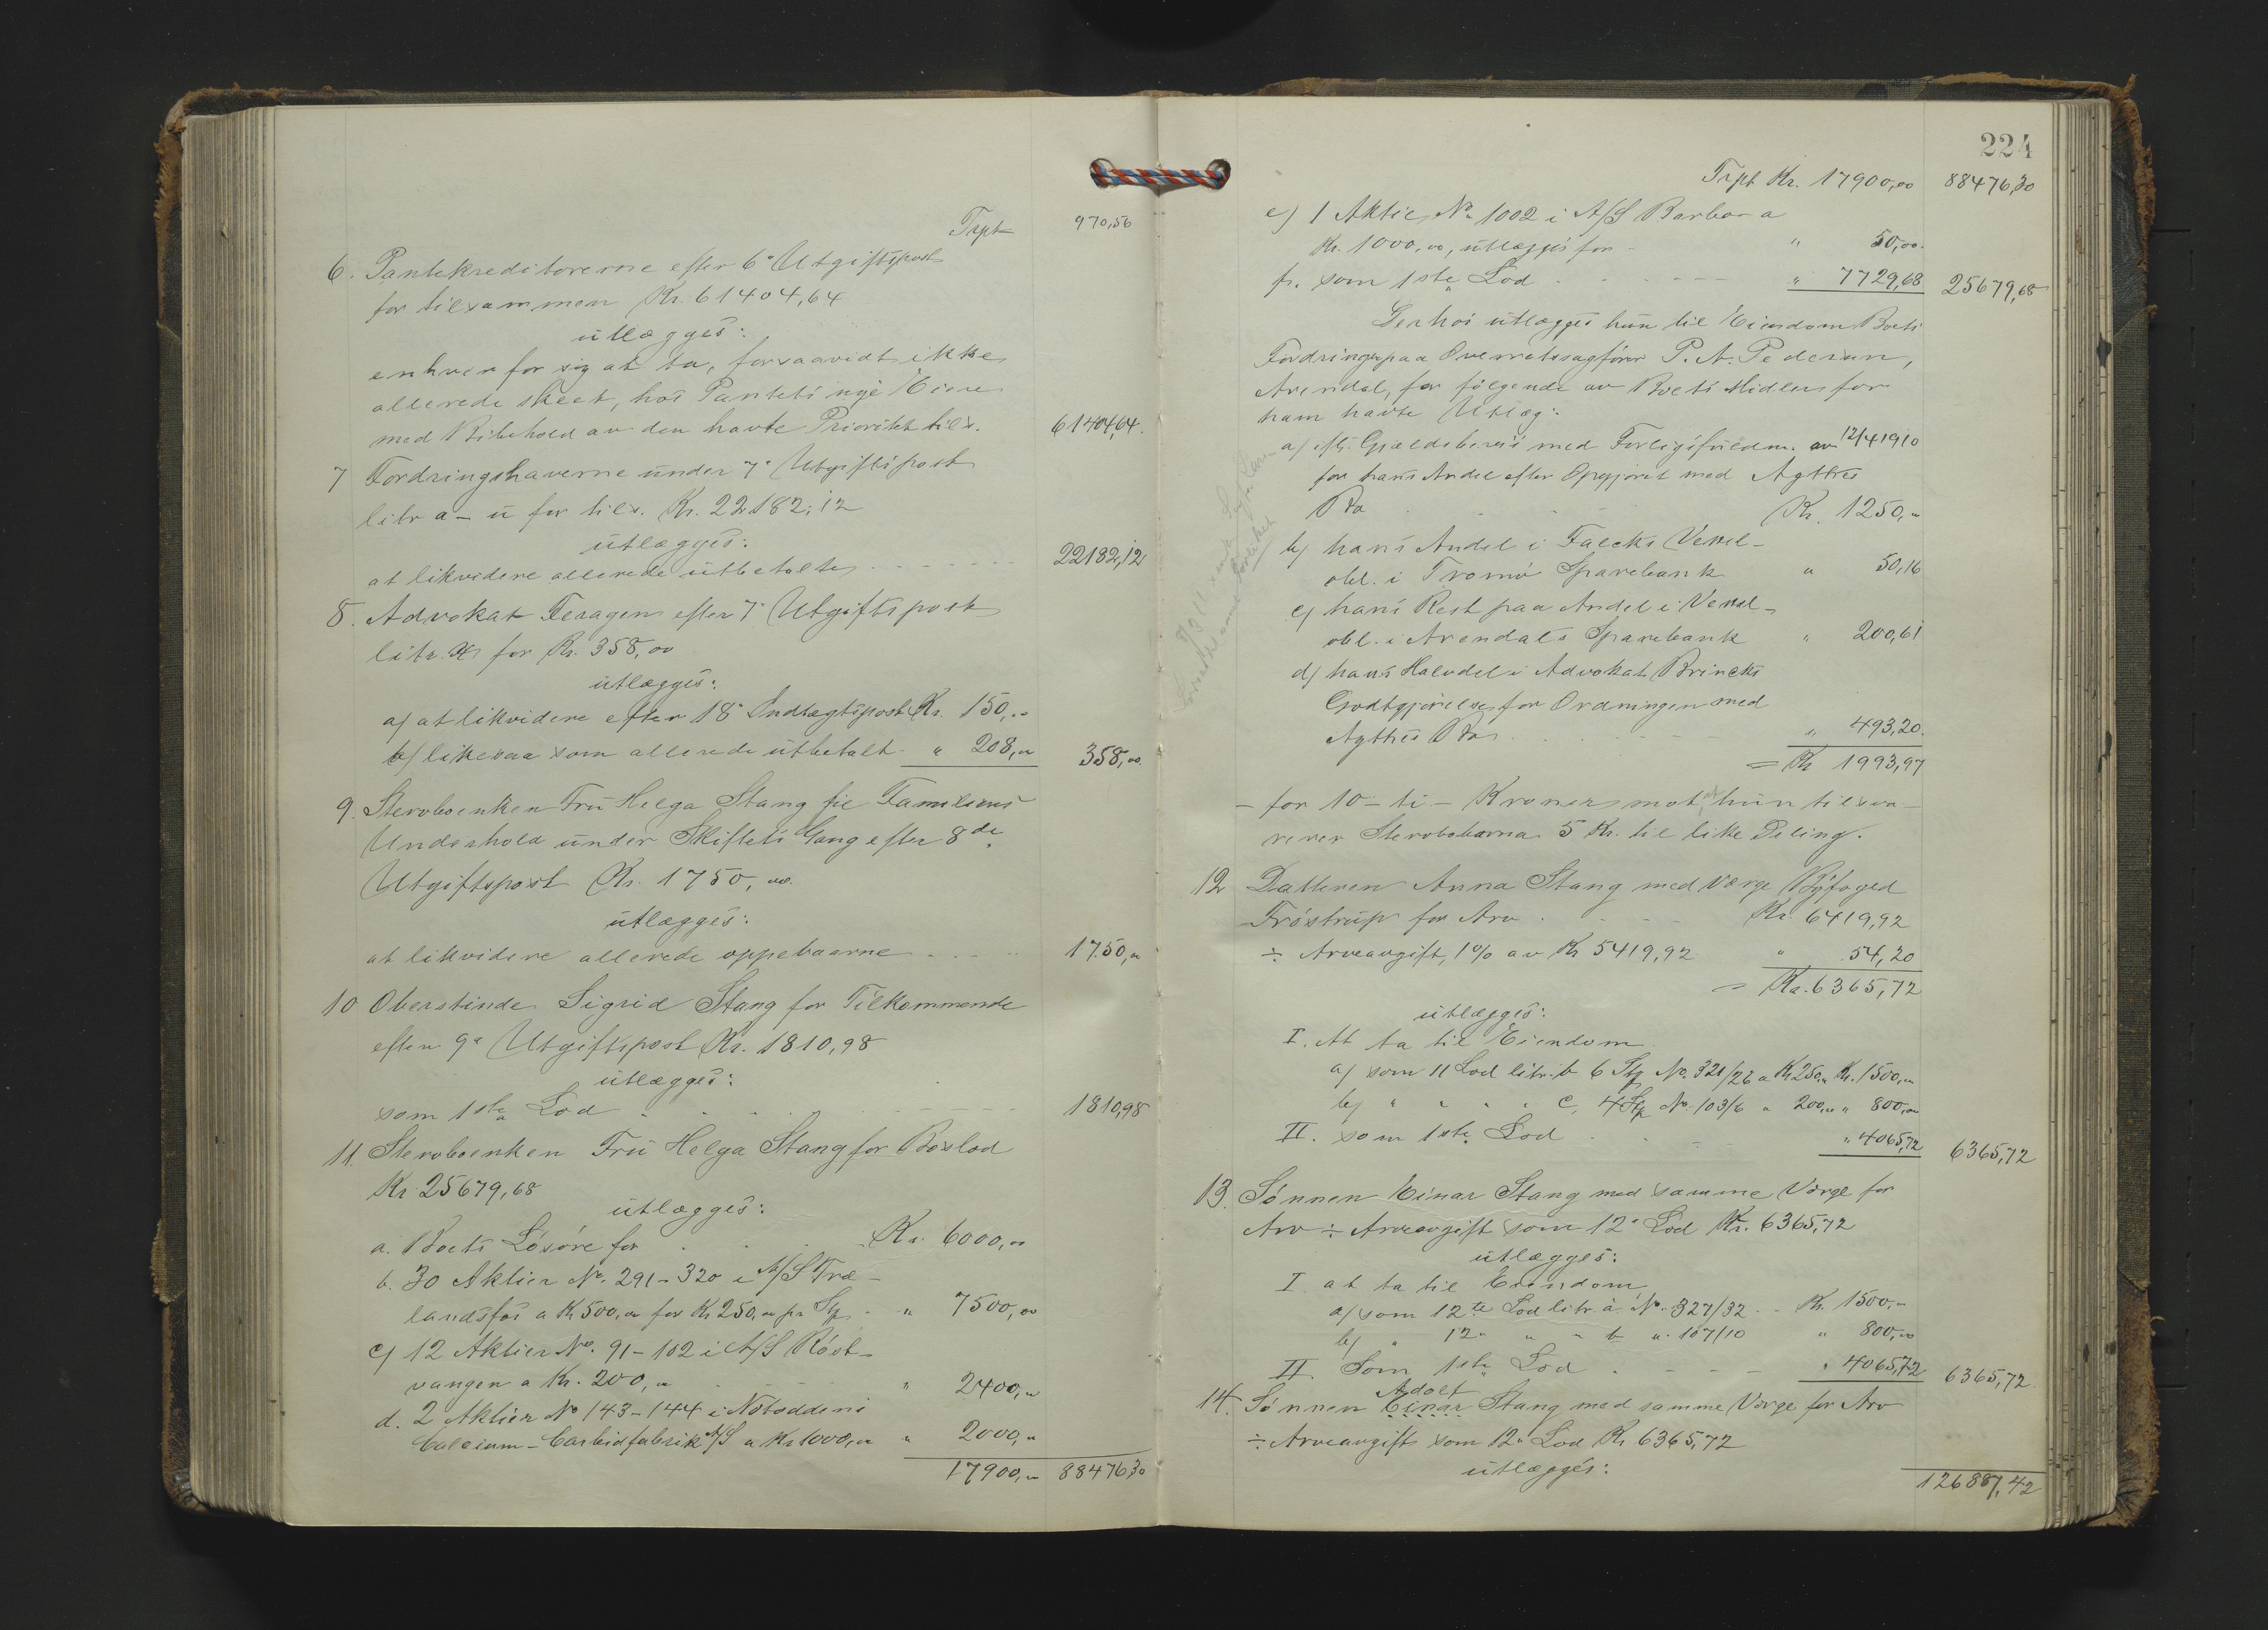 Trpt 970,56
6. Pantekreditorerne efter 6e Utgiftspost
for tilsammen Kr. 61404,64
utlægges:
enhver for sig at ta, forsaavidt ikke
allerede skeet, hos Pantets nye Eiere
med Bibehold av den havte Prioritet tils. 61404,64.
7 Fordringshaverne under 7e Utgiftspost
litr a - u for tils. Kr. 22182,12
utlægges:
at likvidere allerede utbetalte 22182,12
8. Advokat Feragen efter 7e Utgiftspost
litr. x for Kr. 358,00
utlægges:
a) at likvidere efter 18e Indtægtspost Kr. 150,00
b) likesaa som allerede utbetalt " 208,00 358,00.
9. Stervboenken Fru Helga Stang til Familiens
Underhold under Skiftets Gang efter 8de
Utgiftspost Kr. 1750,00.
utlægges:
at likvidere allerede oppebaarne 1750,00
10 Oberstinde Sigrid Stang for Tilkommende
efter 9e Utgiftspost Kr. 1810,98
utlægges:
som 1ste Lod 1810,98
11. Stervboenken Fru Helga Stang for Boslod
Kr. 25679,68
utlægges:
a. Boets Løsøre for Kr. 6000,00
b. 30 Aktier No. 291-320 i A/S Træ-
landsfos a Kr 500,00 for Kr 250,00 pr Stp. " 7500,00
c) 12 Aktier No. 91-102 i A/S Röst-
vangen a Kr. 200,00 " 2400,00
d. 2 Aktier No 143-144 i Notoddens
Calcium-Carbidfabrik A/S a Kr 1000,00 " 2000,00
17900,00 88476,30
224
Trpt Kr. 17900,00 88476,30
e) 1 Aktie No 1002 i A/S Barbara
Kr. 1000,00, utlægges for " 50,00.
f. som 1ste Lod " 7729,68 25679,68
Derhos utlægges hun til Eiendom Boets
Fordringer paa Overretssagfører P. A. Pedersen,
Arendal, for følgende av Boets Midler for
ham havte Utlæg:
a) iflg. Gjældsbevis med Forligsfuldm. av 12/4 1910
for hans Andel efter Opgjøret med Agthes
Bo Kr. 1250,00
b) hans Andel i Falcks Vexel-
obl. i Tromø Sparebank " 50,16
c) hans Rest paa Andel i Vexel-
obl. i Arendals Sparebank " 200,61
d) hans Halvdel i Advokat Brincks
Godtgjørelse for Ordningen med
Agthes Bo " 493,20.
= Kr 1993,97
- for 10 - ti - Kroner mot at hun tilsva-
rerer Stervbobarna 5 Kr. til like Deling.
12 Datteren Anna Stang med Værge Byfoged
Frøstrup for Arv Kr. 6419,92
÷ Arveavgift, 1% av Kr 5419,92 " 54,20
= Kr. 6365,72
utlægges:
I. At ta til Eiendom
a) som 11 Lod litr. b 6 Stp No. 321/26 a Kr 250,00 Kr. 1500,00
b) " " " " c, 4 Stp No. 103/6 a 200,00 " 800,00
II. som 1ste Lod " 4065,72 6365,72
13. Sønnen Einar Stang med samme Værge for
Arv ÷ Arveavgift som 12e Lod Kr. 6365,72
utlægges:
I. at ta til Eiendom
a) som 12te Lod litr. a. No. 327/32 Kr. 1500,00
b) " 12" " " b " 107/10 " 800,00
II. Som 1ste Lod " 4065,72 6365,72
Adolf
14. Sønnen Einar Stang med samme Værge for Arv
÷ Arveavgift som 12e Lod Kr. 6365,72
utlægges:
126887,42